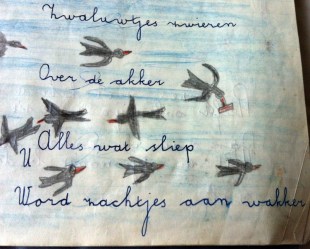 Zwaluwtjes zwieren
Over de akker
Alles wat sliep
U
Word zachtjes aan wakker